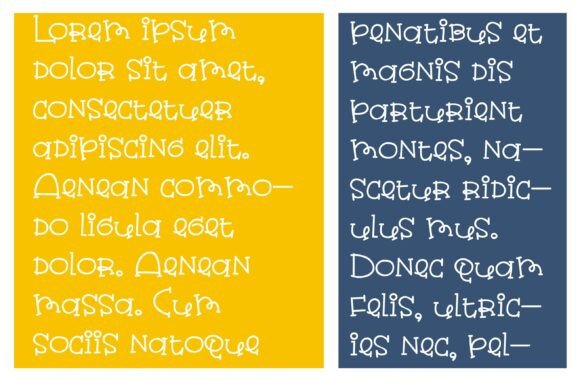 Lorem ipsum
dolor sit amet,
consectetuer
adipiscing elit.
Aenean commo-
do ligula eget
dolor. Aenean
massa. Cum
sociis natoque
penatibus et
magnis dis
parturient
montes, na-
scetur ridic-
ulus mus.
Donec quam
felis, ultric-
ies nec, pel-